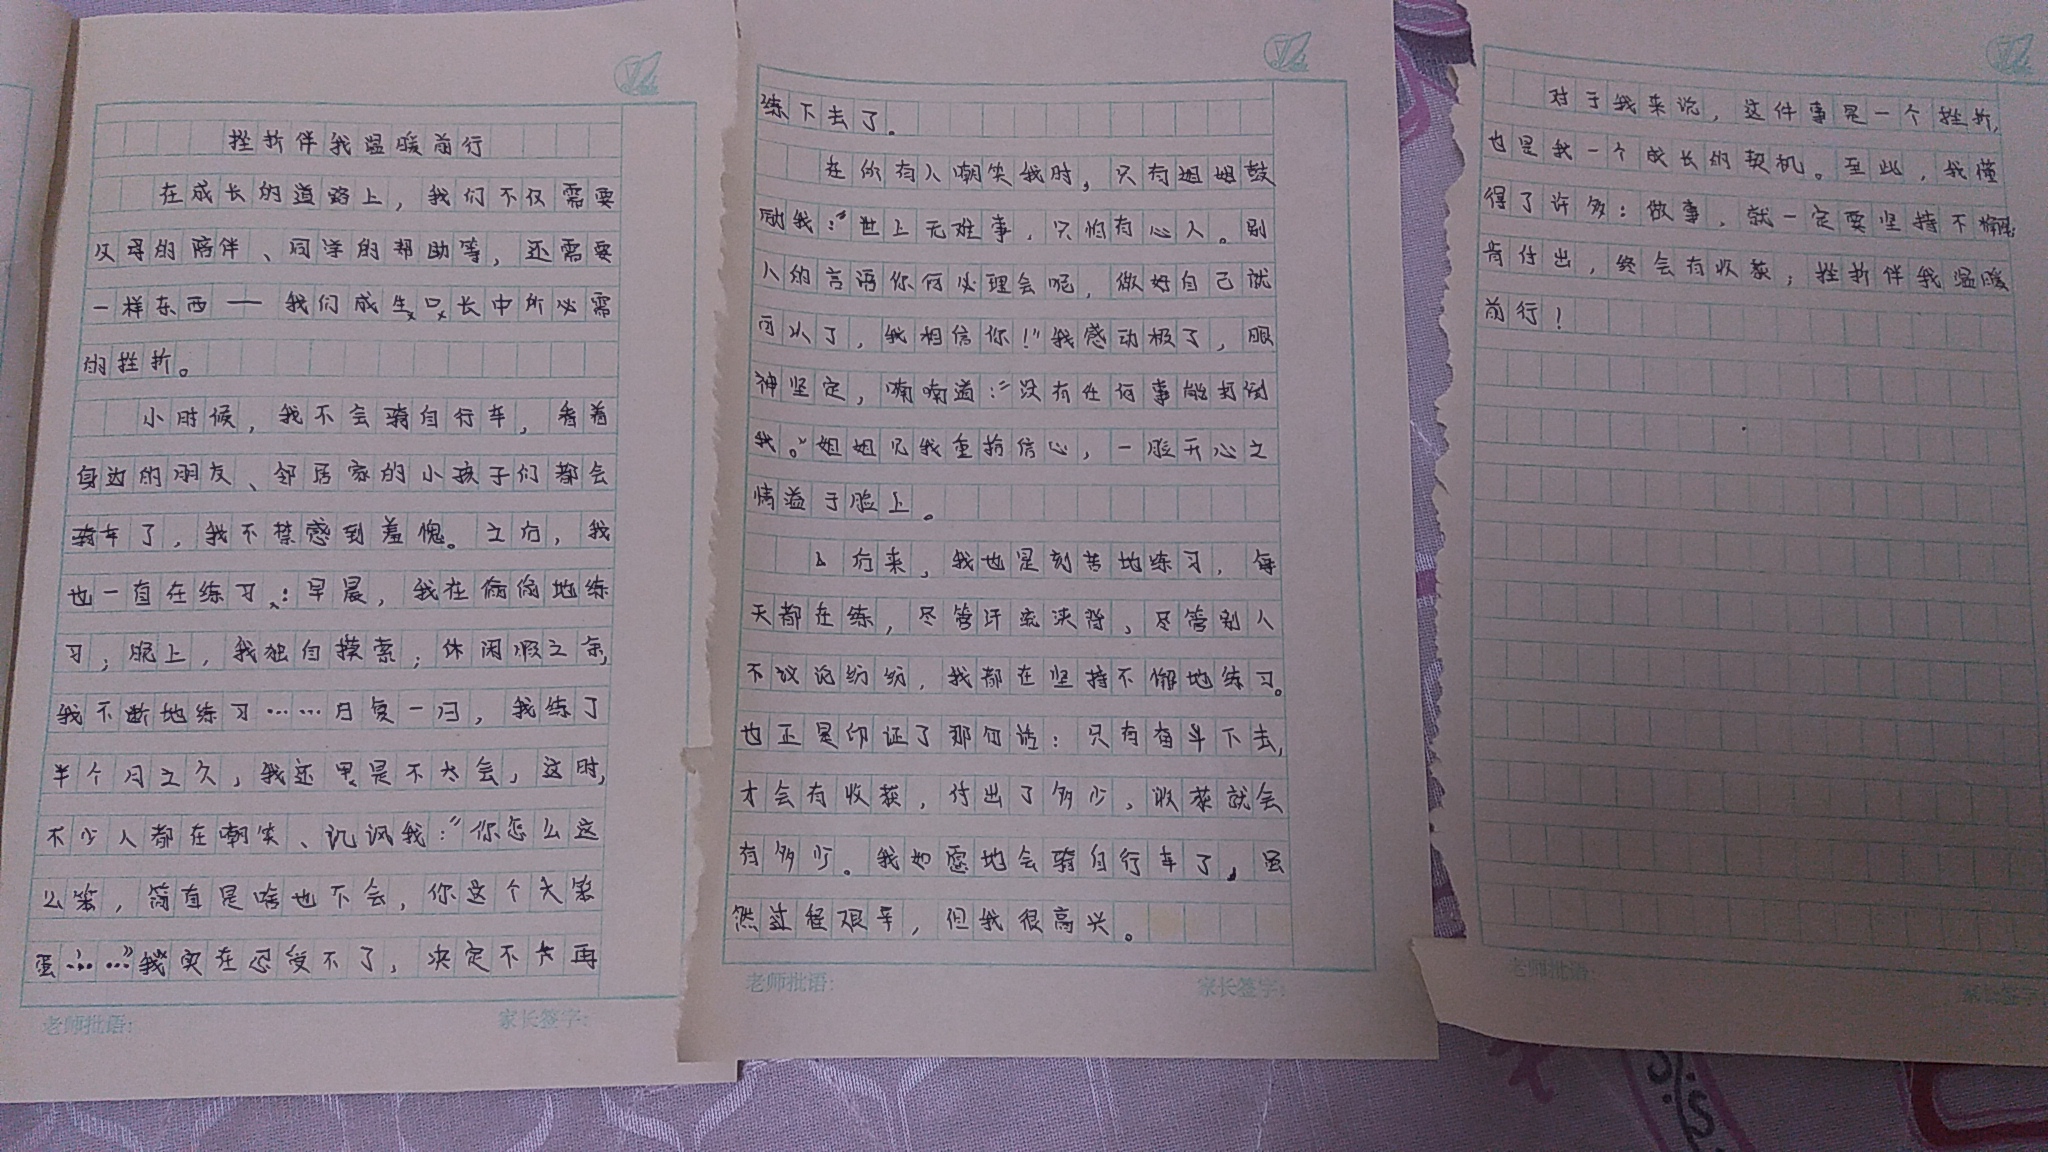 挫折伴我温暖前行
在成长的道路上，我们不仅需要
父母的陪伴、同学的帮助等，还需要
一样东西——我们成长中所必需
的挫折。
小时候，我不会骑自行车，看着
身边的朋友、邻居家的小孩子们都会
骑车了，我不禁感到羞愧。之后，我
也一直在练习：早晨，我在偷偷地练
习；晚上，我独自摸索；休闲暇之余，
我不断地练习……日复一日，我练了
半个月之久，我还是不太会，这时，
不少人都在嘲笑、讥讽我：“你怎么这
么笨，简直是啥也不会，你这个大笨
蛋……”我实在忍受不了，决定不再
练下去了。
在所有人嘲笑我时，只有姐姐鼓
励我：“世上无难事，只怕有心人。别
人的言语你何必理会呢，做好自己就
可以了，我相信你！”我感动极了，眼
神坚定，喃喃道：“没有任何事能打倒
我。”姐姐见我重拾信心，一脸开心之
情溢于脸上。
后来，我也是刻苦地练习，每
天都在练，尽管汗流浃背，尽管别人
不议论纷纷，我都在坚持不懈地练习。
也正是印证了那句话：只有奋斗下去，
才会有收获，付出了多少，收获就会
有多少。我如愿地会骑自行车了，虽
然过程艰辛，但我很高兴。
对于我来说，这件事是一个挫折，
也是我一个成长的契机。至此，我懂
得了许多：做事，就一定要坚持不懈
肯付出，终会有收获；挫折伴我温暖
前行！
老师批语：
家长签字：
老师批语：
家长签字：
老师批语：
家长签字：